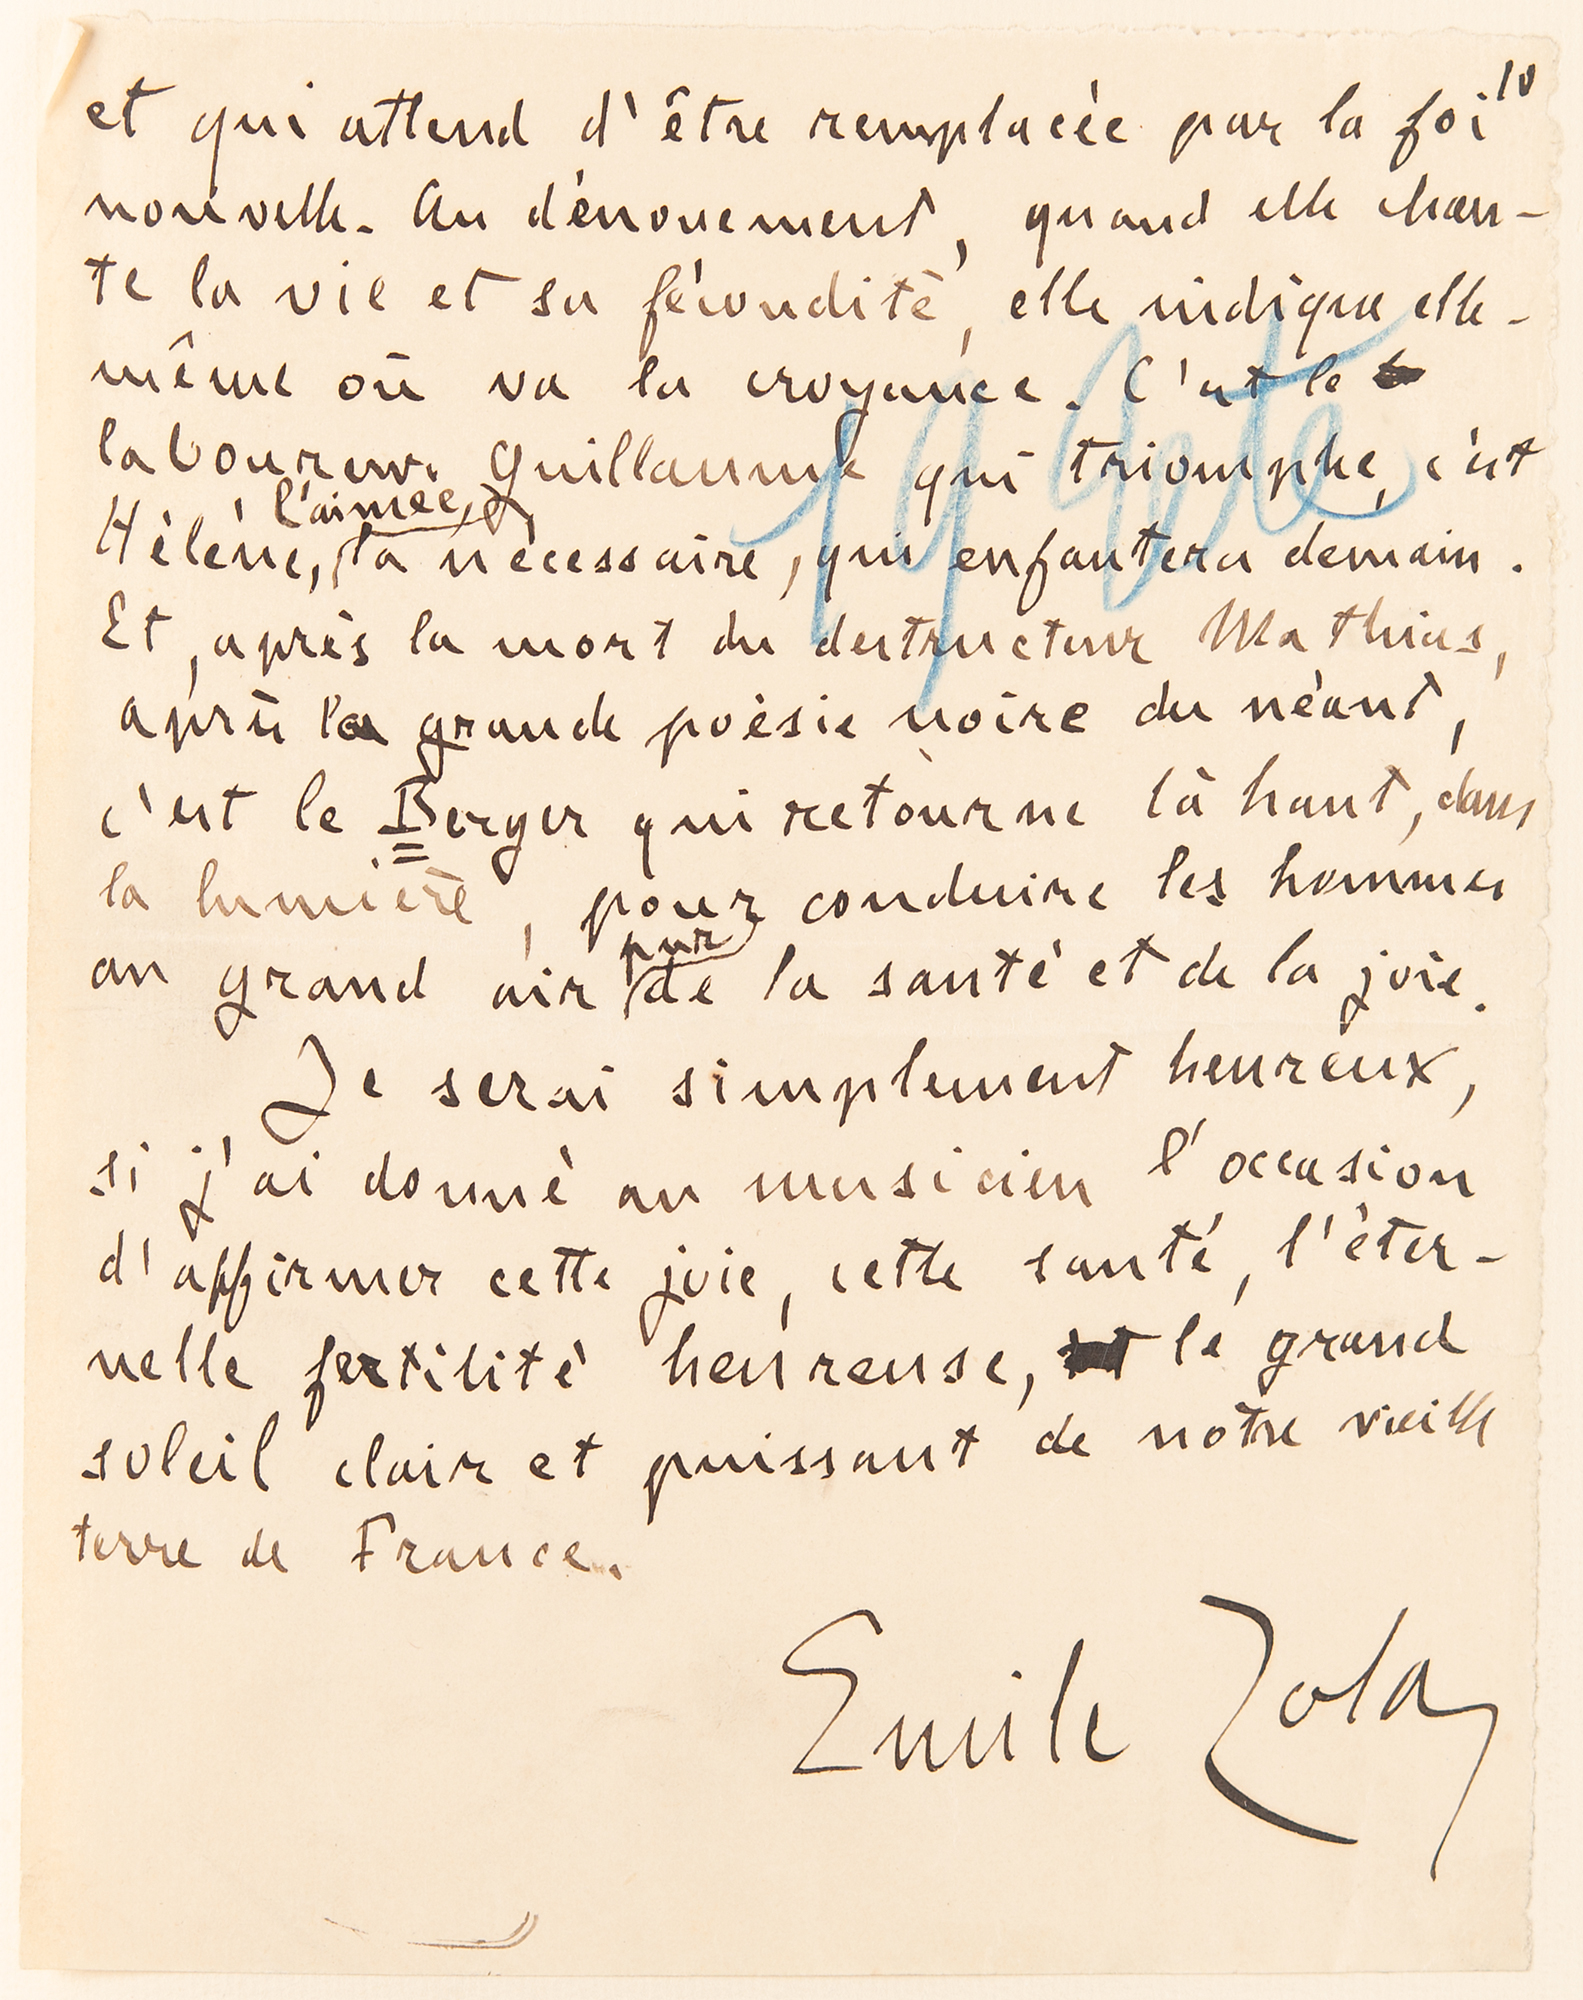 10
et qui attend d'être remplacée par la foi
nouvelle. Au dénouement, quand elle chan-
te la vie et sa fécondité, elle indique elle-
même où va la croyance. C'est le
laboureur Guillaume qui triomphe, c'est
l'aimée,
Hélène, la nécessaire, qui enfantera demain.
Et, après la mort du destructeur Mathias,
après la grande poésie noire du néant,
c'est le Berger qui retourne là haut, dans
la lumière, pour conduire les hommes
pur
au grand air de la santé et de la joie.
Je serai simplement heureux,
si j'ai donné au musicien l'occasion
d'affirmer cette joie, cette santé, l'éter-
nelle fertilité heureuse, le grand
soleil clair et puissant de notre vieille
terre de France.
Emile Zola